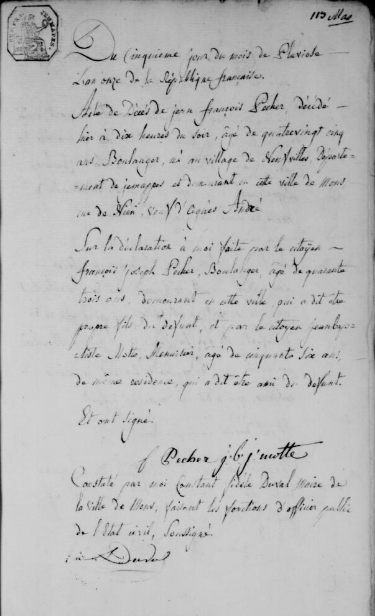 113 Mas
Du Cinquieme jour du mois de Pluviose
L'an onze de la République française.
Acte de Décès de jean françois Pecher, décédé
hier à dix heures du soir, agé de quatrevingt cinq
ans, Boulanger, né au village de Neufvilles Départe-
ment de jemappes et demeurant en cette ville de Mons
rue de veuf d'Agnès André
Sur la déclaration à moi faite par le citoyen
françois joseph Pecher, Boulanger, agé de quarante
trois ans, demeurant en cette ville, qui a dit être
propre fils du défunt, et par le citoyen jeanbap-
tiste Motte, Menuisier, agé de cinquante six ans,
de même residence, qui a dit être ami du defunt.
Et ont signé.
f Pecher j. b. j. motte
Constaté par moi Constant fidèle Duval Maire de
la ville de Mons, faisant les fonctions d'officier public
de l'Etat civil, soussigné.
Duval